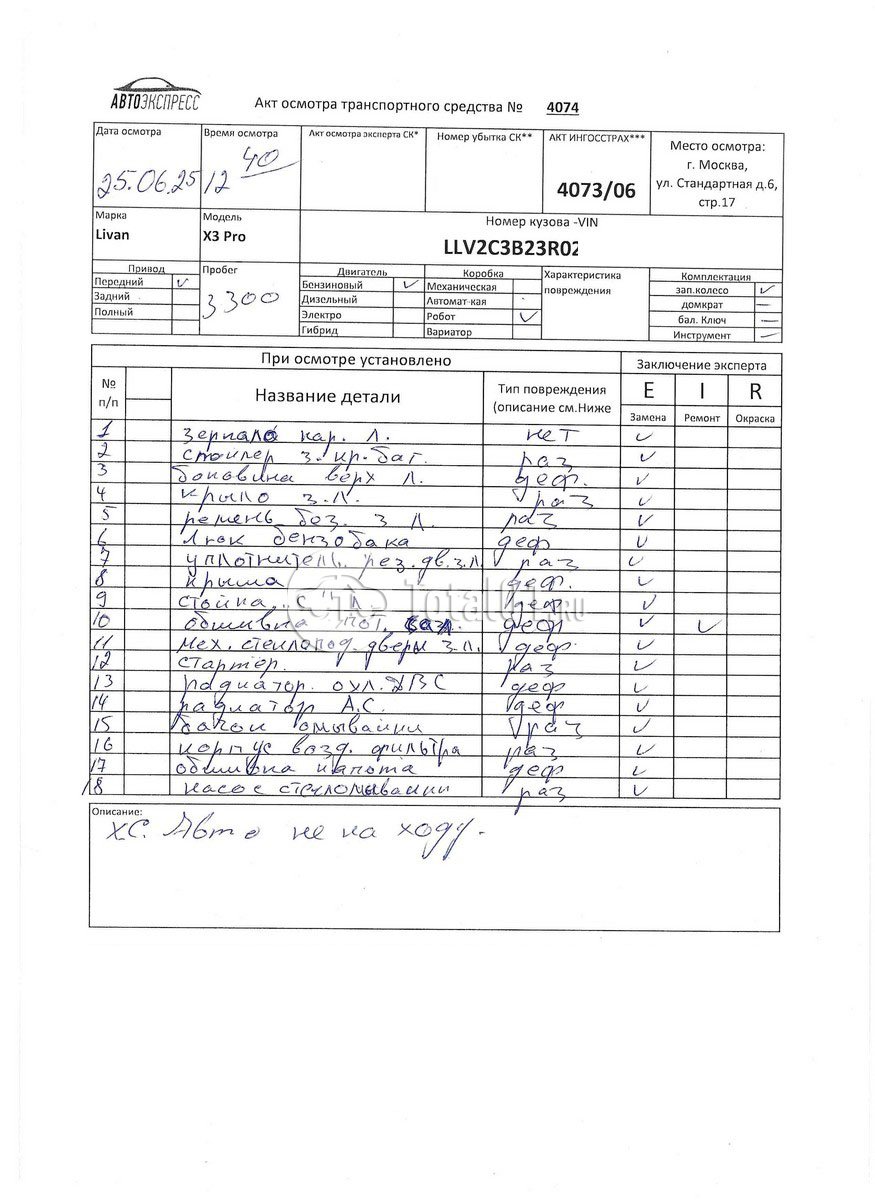 АВТОЭКСПРЕСС
Акт осмотра транспортного средства № 4074
Дата осмотра
25.06.25
Время осмотра
12 40
Акт осмотра эксперта СК*
Номер убытка СК**
АКТ ИНГОССТРАХ***
4073/06
Место осмотра:
г. Москва,
ул. Стандартная д.6,
стр.17
Марка
Livan
Модель
X3 Pro
Номер кузова -VIN
LLV2C3B23R02
Привод
Передний ✓
Задний
Полный
Пробег
3300
Двигатель
Бензиновый ✓
Дизельный
Электро
Гибрид
Коробка
Механическая
Автомат-кая
Робот ✓
Вариатор
Характеристика
повреждения
Комплектация
зап.колесо ✓
домкрат —
бал. Ключ —
Инструмент —
При осмотре установлено
Заключение эксперта
№
п/п
Название детали
Тип повреждения
(описание см.Ниже
E I R
Замена Ремонт Окраска
1 зеркало нар. л. нет ✓
2 спойлер з. кр. баг. раз ✓
3 боковина верх л. деф. ✓
4 крыло з.л. раз ✓
5 ремень без. з л. раз ✓
6 люк бензобака деф ✓
7 уплотнитель рез. дв. з.л. раз ✓
8 крыша деф. ✓
9 стойка С Л деф ✓
10 обшивка пот. деф ✓
11 мех. стеклопод. двери з.л. деф ✓
12 стартер. раз ✓
13 радиатор. охл. ДВС деф ✓
14 радиатор А.С. деф ✓
15 бачок омывайки раз ✓
16 корпус возд. фильтра раз ✓
17 обшивка капота деф ✓
18 насос стеклоомывайки раз ✓
Описание:
ХС. Авто не на ходу.
Total01.RU